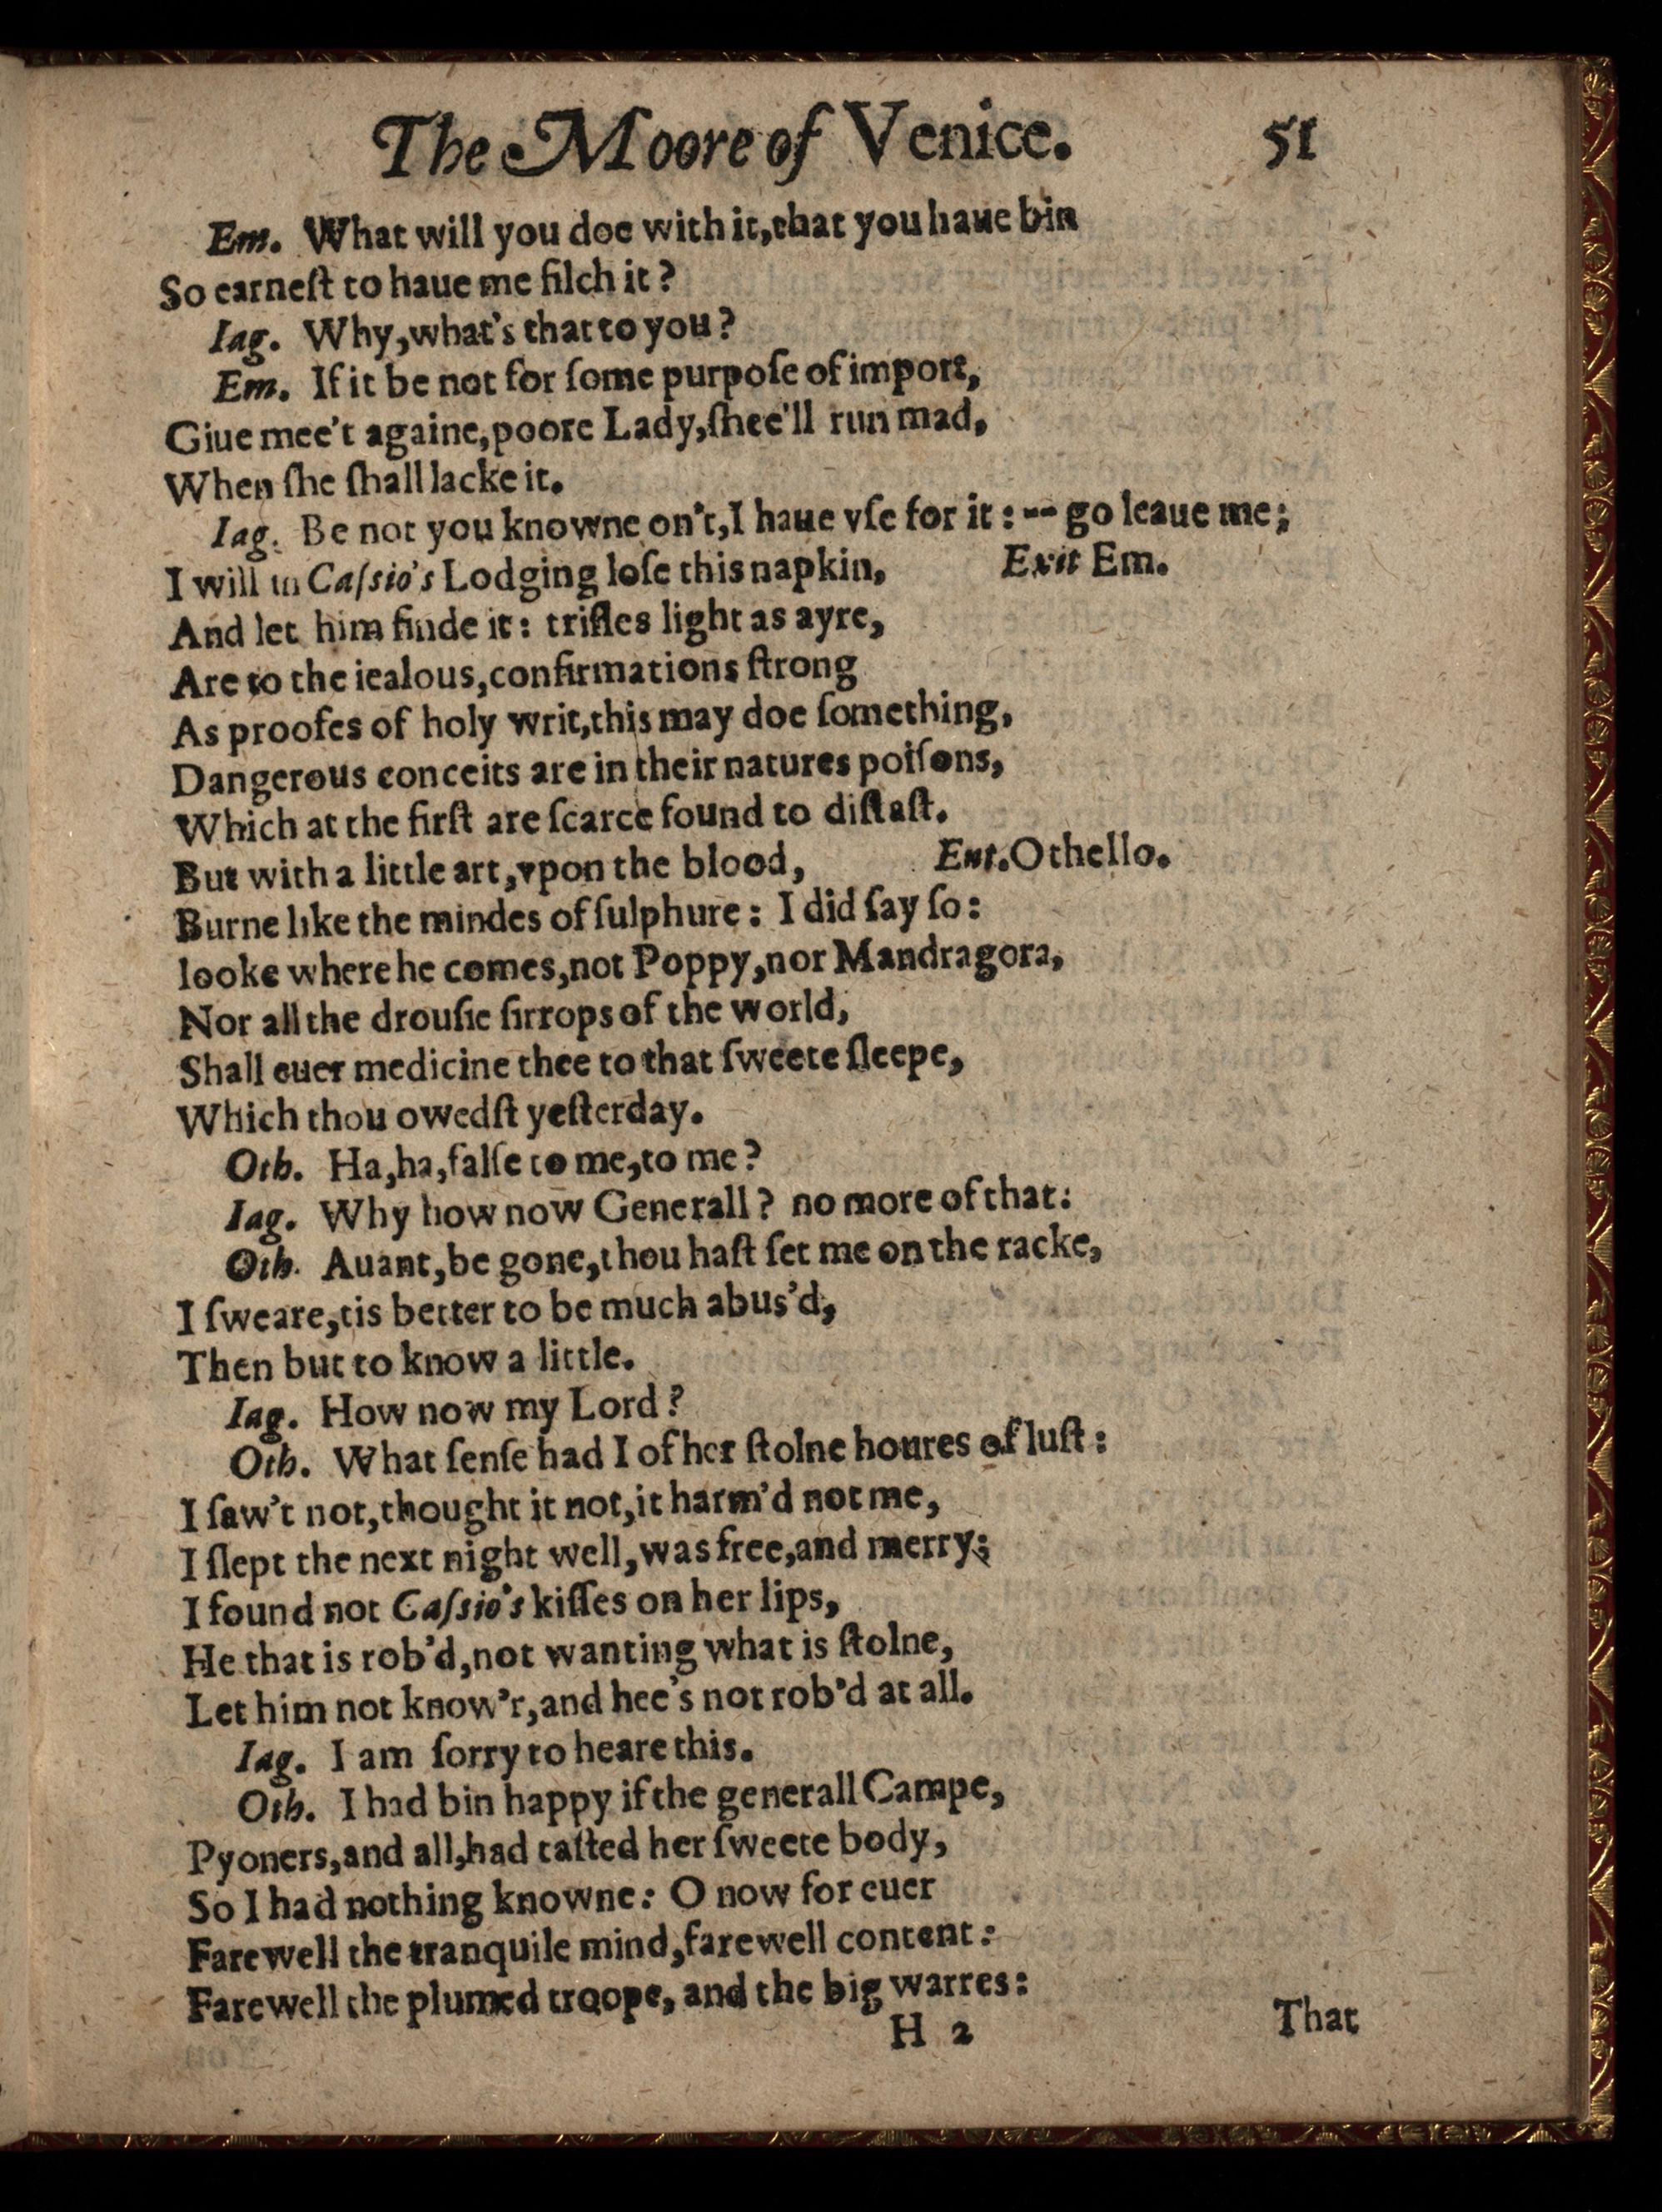 The Moore of Venice. 51
Em. What will you doe with it,that you haue bin
So earneſt to haue me filch it?
Iag. Why,what's that to you?
Em. If it be not for ſome purpoſe of import,
Giue mee't againe,poore Lady,ſhee'll run mad,
When ſhe ſhall lacke it.
Iag. Be not you knowne on't,I haue vſe for it: -- go leaue me;
I will in Caſsio's Lodging loſe this napkin, Exit Em.
And let him finde it: trifles light as ayre,
Are to the iealous,confirmations ſtrong
As proofes of holy writ,this may doe ſomething,
Dangerous conceits are in their natures poiſons,
Which at the firſt are ſcarce found to diſtaſt.
But with a little art,vpon the blood, Ent.Othello.
Burne like the mindes of ſulphure: I did ſay ſo:
looke where he comes,not Poppy,nor Mandragora,
Nor all the drouſie ſirrops of the world,
Shall euer medicine thee to that ſweete ſleepe,
Which thou owedſt yeſterday.
Oth. Ha,ha,falſe to me,to me?
Iag. Why how now Generall? no more of that:
Oth. Auant,be gone,thou haſt ſet me on the racke,
I ſweare,tis better to be much abus'd,
Then but to know a little.
Iag. How now my Lord?
Oth. What ſenſe had I of her ſtolne houres of luſt:
I ſaw't not,thought it not,it harm'd not me,
I ſlept the next night well,was free,and merry;
I found not Caſsio's kiſſes on her lips,
He that is rob'd,not wanting what is ſtolne,
Let him not know't,and hee's not rob'd at all.
Iag. I am ſorry to heare this.
Oth. I had bin happy if the generall Campe,
Pyoners,and all,had taſted her ſweete body,
So I had nothing knowne: O now for euer
Farewell the tranquile mind,farewell content:
Farewell the plumed troope, and the big warres:
H 2 That